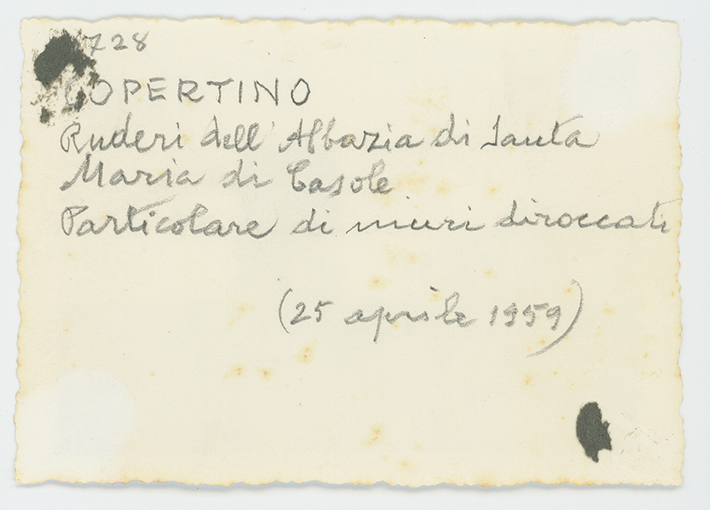 728
COPERTINO
Ruderi dell'Abbazia di Santa
Maria di Casole
Particolare di muri diroccati
(25 aprile 1959)